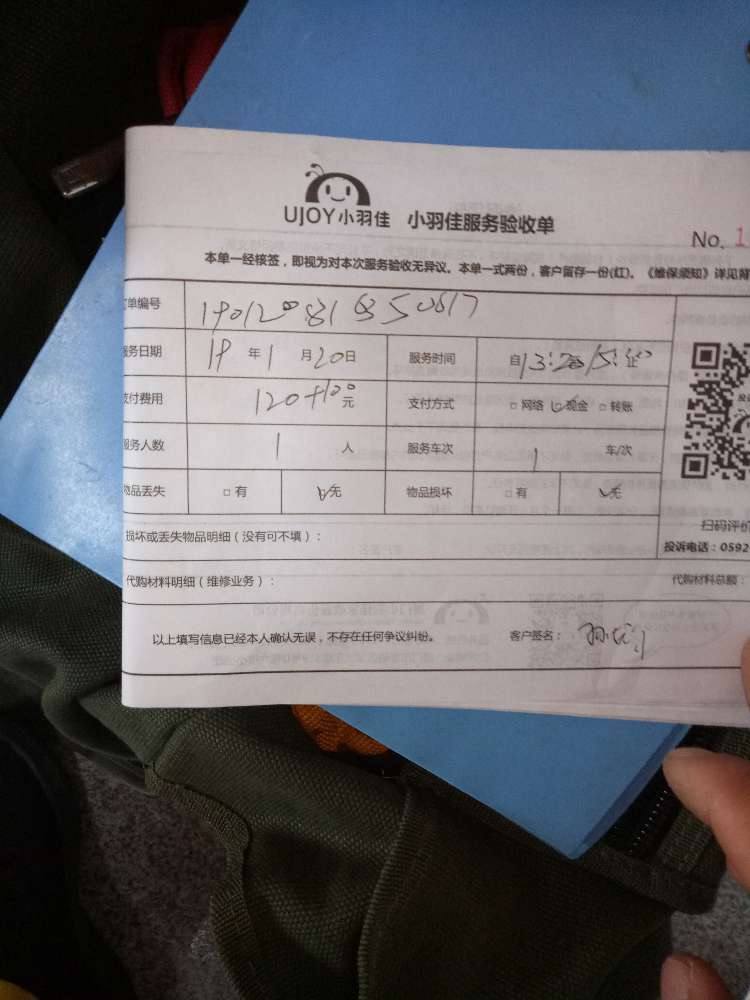 UJOY小羽佳 小羽佳服务验收单
No. 1
本单一经核签，即视为对本次服务验收无异议。本单一式两份，客户留存一份(红)。《维保须知》详见背
单编号
务日期 19 年 1 月 20 日 服务时间 自 13:20 至 15:20 止
付费用 120+10 元 支付方式 □网络 现金 □转账
务人数 1 人 服务车次 1 车/次
物品丢失 □有 无 物品损坏 □有 无
扫码评价
损坏或丢失物品明细（没有可不填）：
投诉电话：0592
代购材料明细（维修业务）： 代购材料总额：
以上填写信息已经本人确认无误，不存在任何争议纠纷。 客户签名：